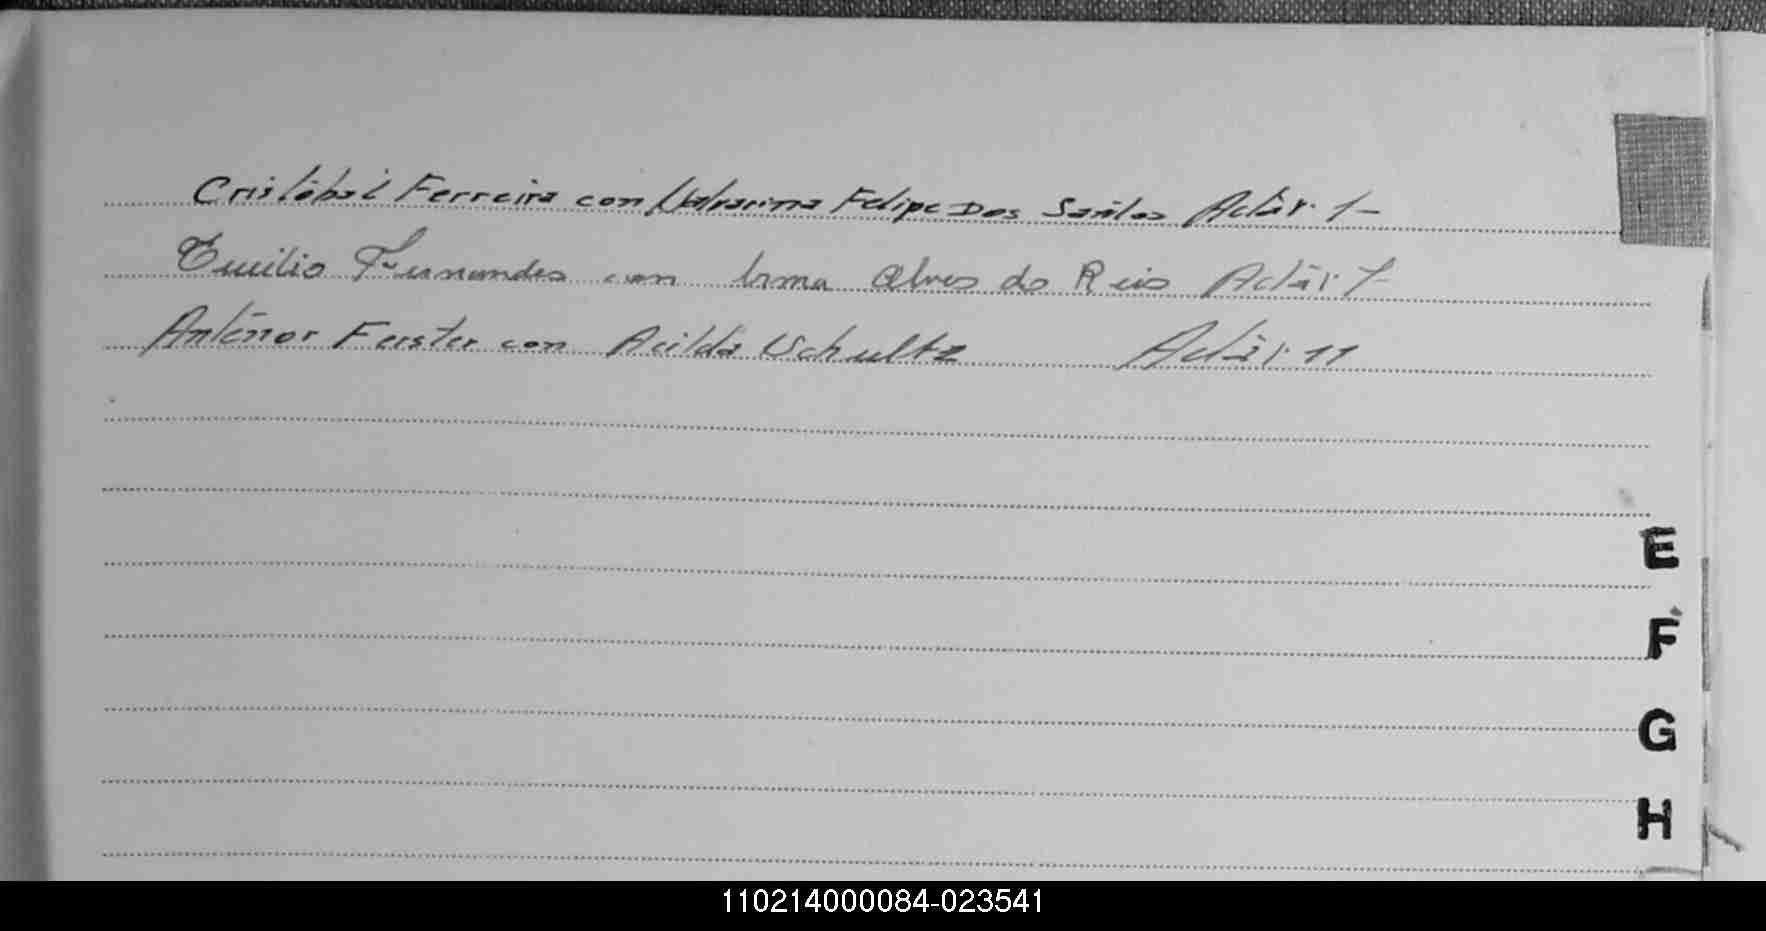 Cristóbal Ferreira con Nalvarina Felipe Dos Santos Actar. 1-
Emilio Fernandes con Irma Alves do Reis Actár 7
Anténor Ferster con Acilda Schultz Actàr 11
E
F
G
H
110214000084-023541